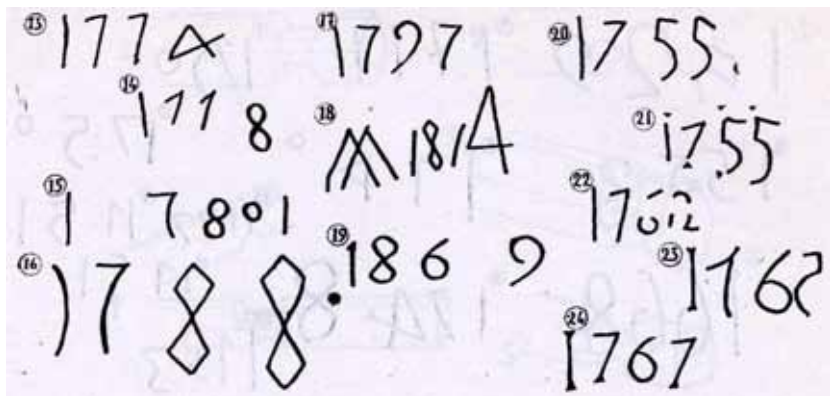 13 1774
14 177 8
15 1 7801
16 1788
17 1797
18 M 1814
19 186 9
20 1755.
21 1755
22 1762
23 1762
24 1767